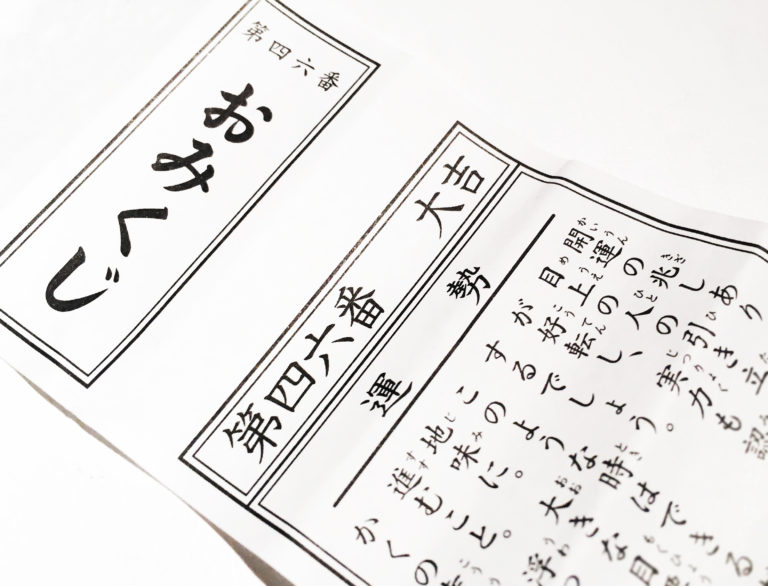 第四六番
おみくじ
第四六番 大吉
運勢
開運の兆しあり
目上の人の引き立
が好転し、実力も認
するでしょう。
このような時はできる
地味に。大きな目
進むこと。浮
かくの